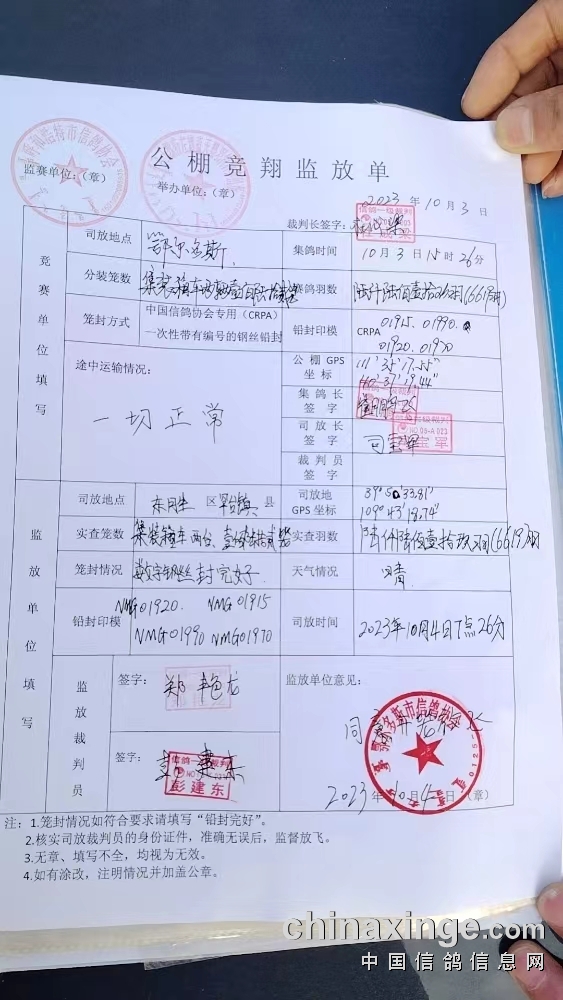 公棚竞翔监放单
监赛单位：（章） 举办单位：（章）
2023年10月3日
裁判长签字：
信鸽一级裁判
竞赛单位填写
司放地点 鄂尔多斯 集鸽时间 10月3日15时26分
分装笼数 赛鸽羽数 陆仟陆佰壹拾玖羽(6619羽)
笼封方式 中国信鸽协会专用（CRPA）
一次性带有编号的钢丝铅封
铅封印模 CRPA 01915. 01990.
01920. 01970
途中运输情况：
一切正常
公棚GPS坐标 111°35′17.55″
40°37′19.44″
集鸽长签字
司放长签字 司宝军
裁判员签字
监放单位填写
司放地点 东胜区 罕台镇县
司放地GPS坐标 39°50′33.81″
109°43′18.74″
实查笼数 集装箱车两台、壹佰陆拾贰笼 实查羽数 陆仟陆佰壹拾玖羽(6619)羽
笼封情况 数字钢丝封完好 天气情况 晴
铅封印模 NMG01920. NMG01915
NMG01990 NMG01970
司放时间 2023年10月4日7点26分
监放裁判员
签字：郑艳龙
签字：彭建东
信鸽一级裁判
彭建东
监放单位意见：
同意
鄂尔多斯市信鸽协会
2023年10月4日（章）
注：1.笼封情况如符合要求请填写“铅封完好”。
2.核实司放裁判员的身份证件，准确无误后，监督放飞。
3.无章、填写不全，均视为无效。
4.如有涂改，注明情况并加盖公章。
chinaxinge.com
中国信鸽信息网